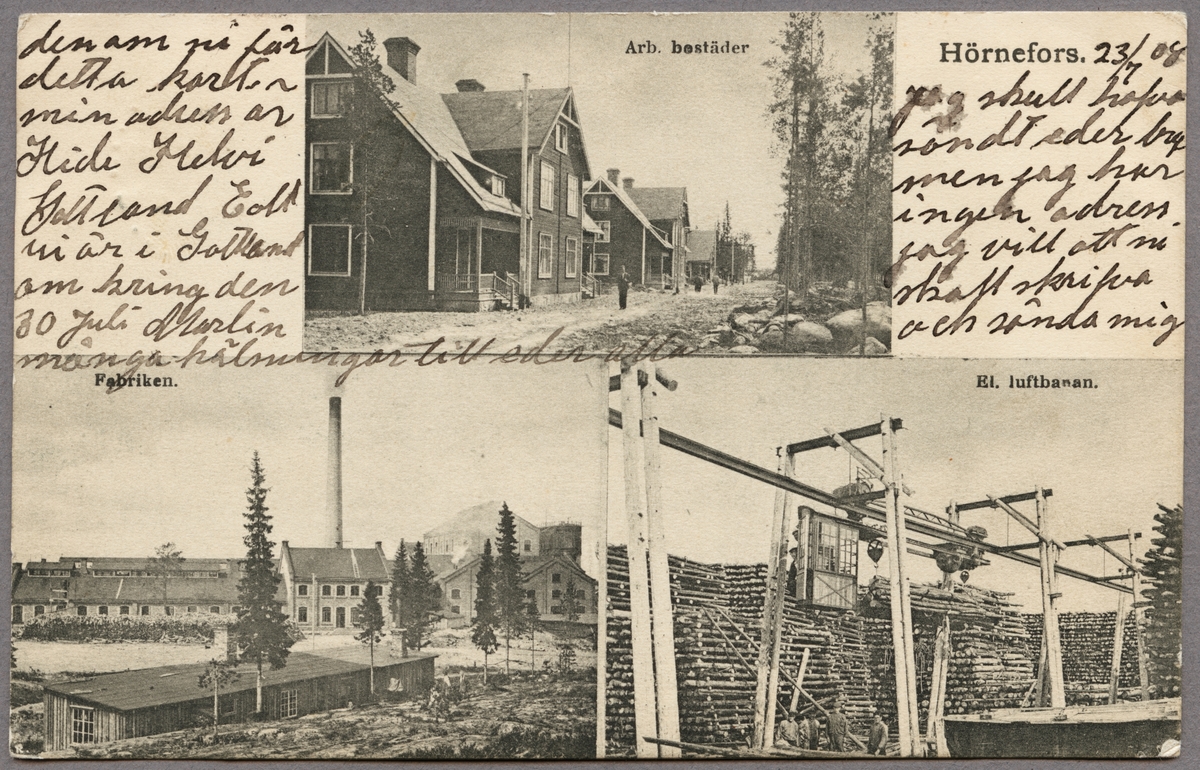 Arb. bostäder
Hörnefors. 23/7 08
jag skull hafva
söndt eder bref
men jag har
ingen adress
jag vill att ni
skall skrifva
och sönda mig
denam ni får
detta kortet
min adress är
Hide Helvi
Gottland Eolt
vi är i Gottland
om kring den
30 Juli Marlin
många hälsningar till eder alla
Fabriken.
El. luftbanan.